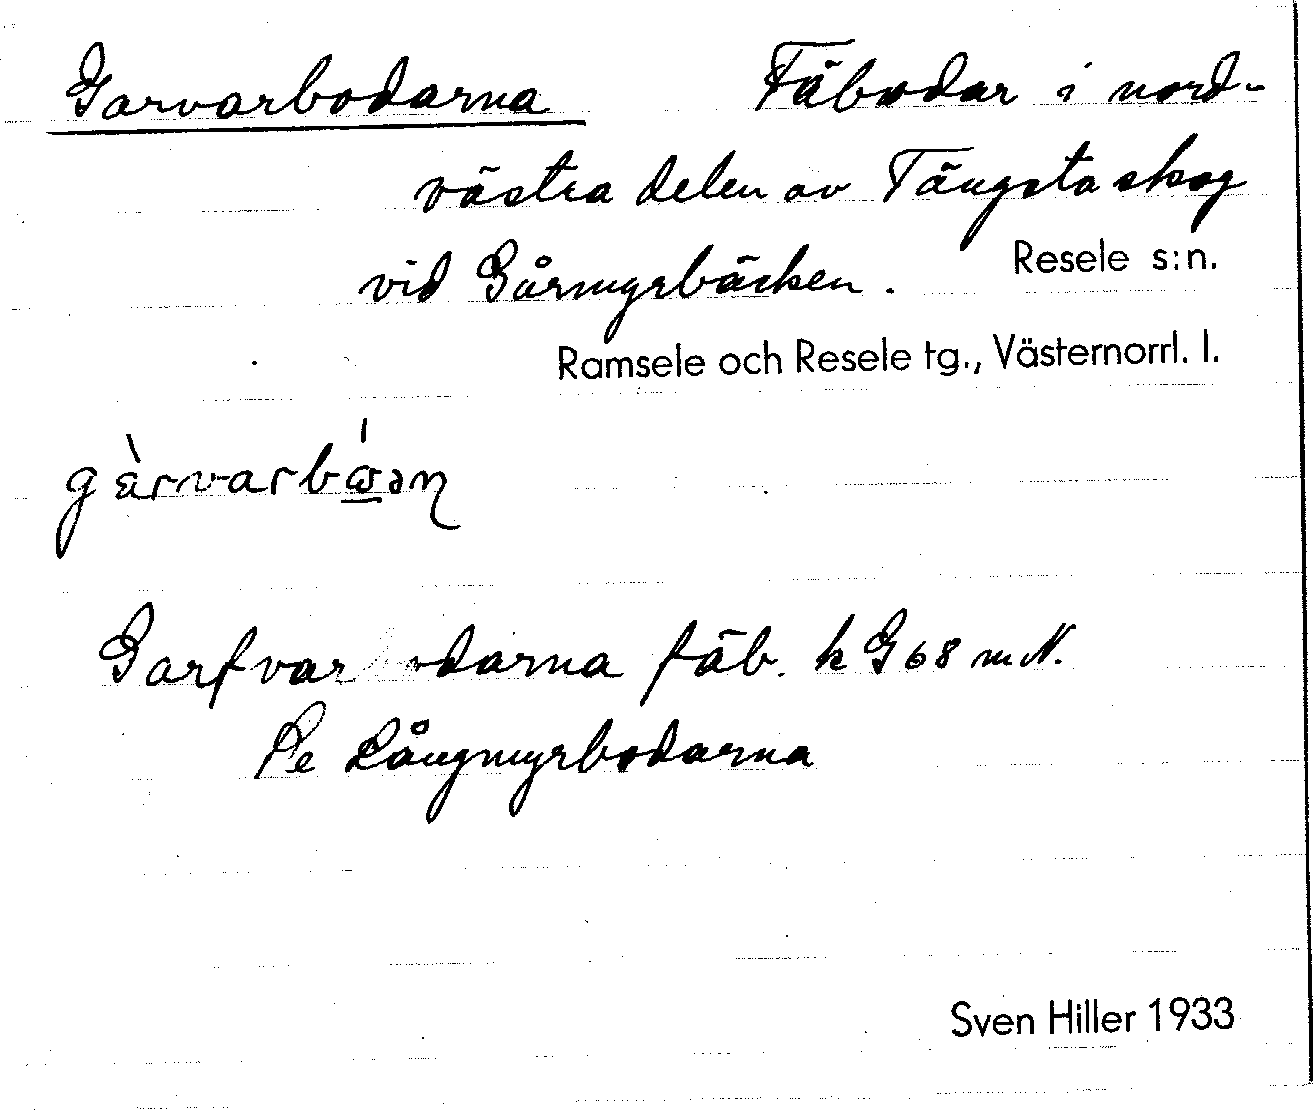 Garvarbodarna Fäbodar i nord-
västra delen av Tängsta skog
vid Gårmyrbäcken.
Resele s:n.
Ramsele och Resele tg., Västernorrl. l.
Garfvar odarna fäb. k G68 m N.
Se Långmyrbodarna
Sven Hiller 1933